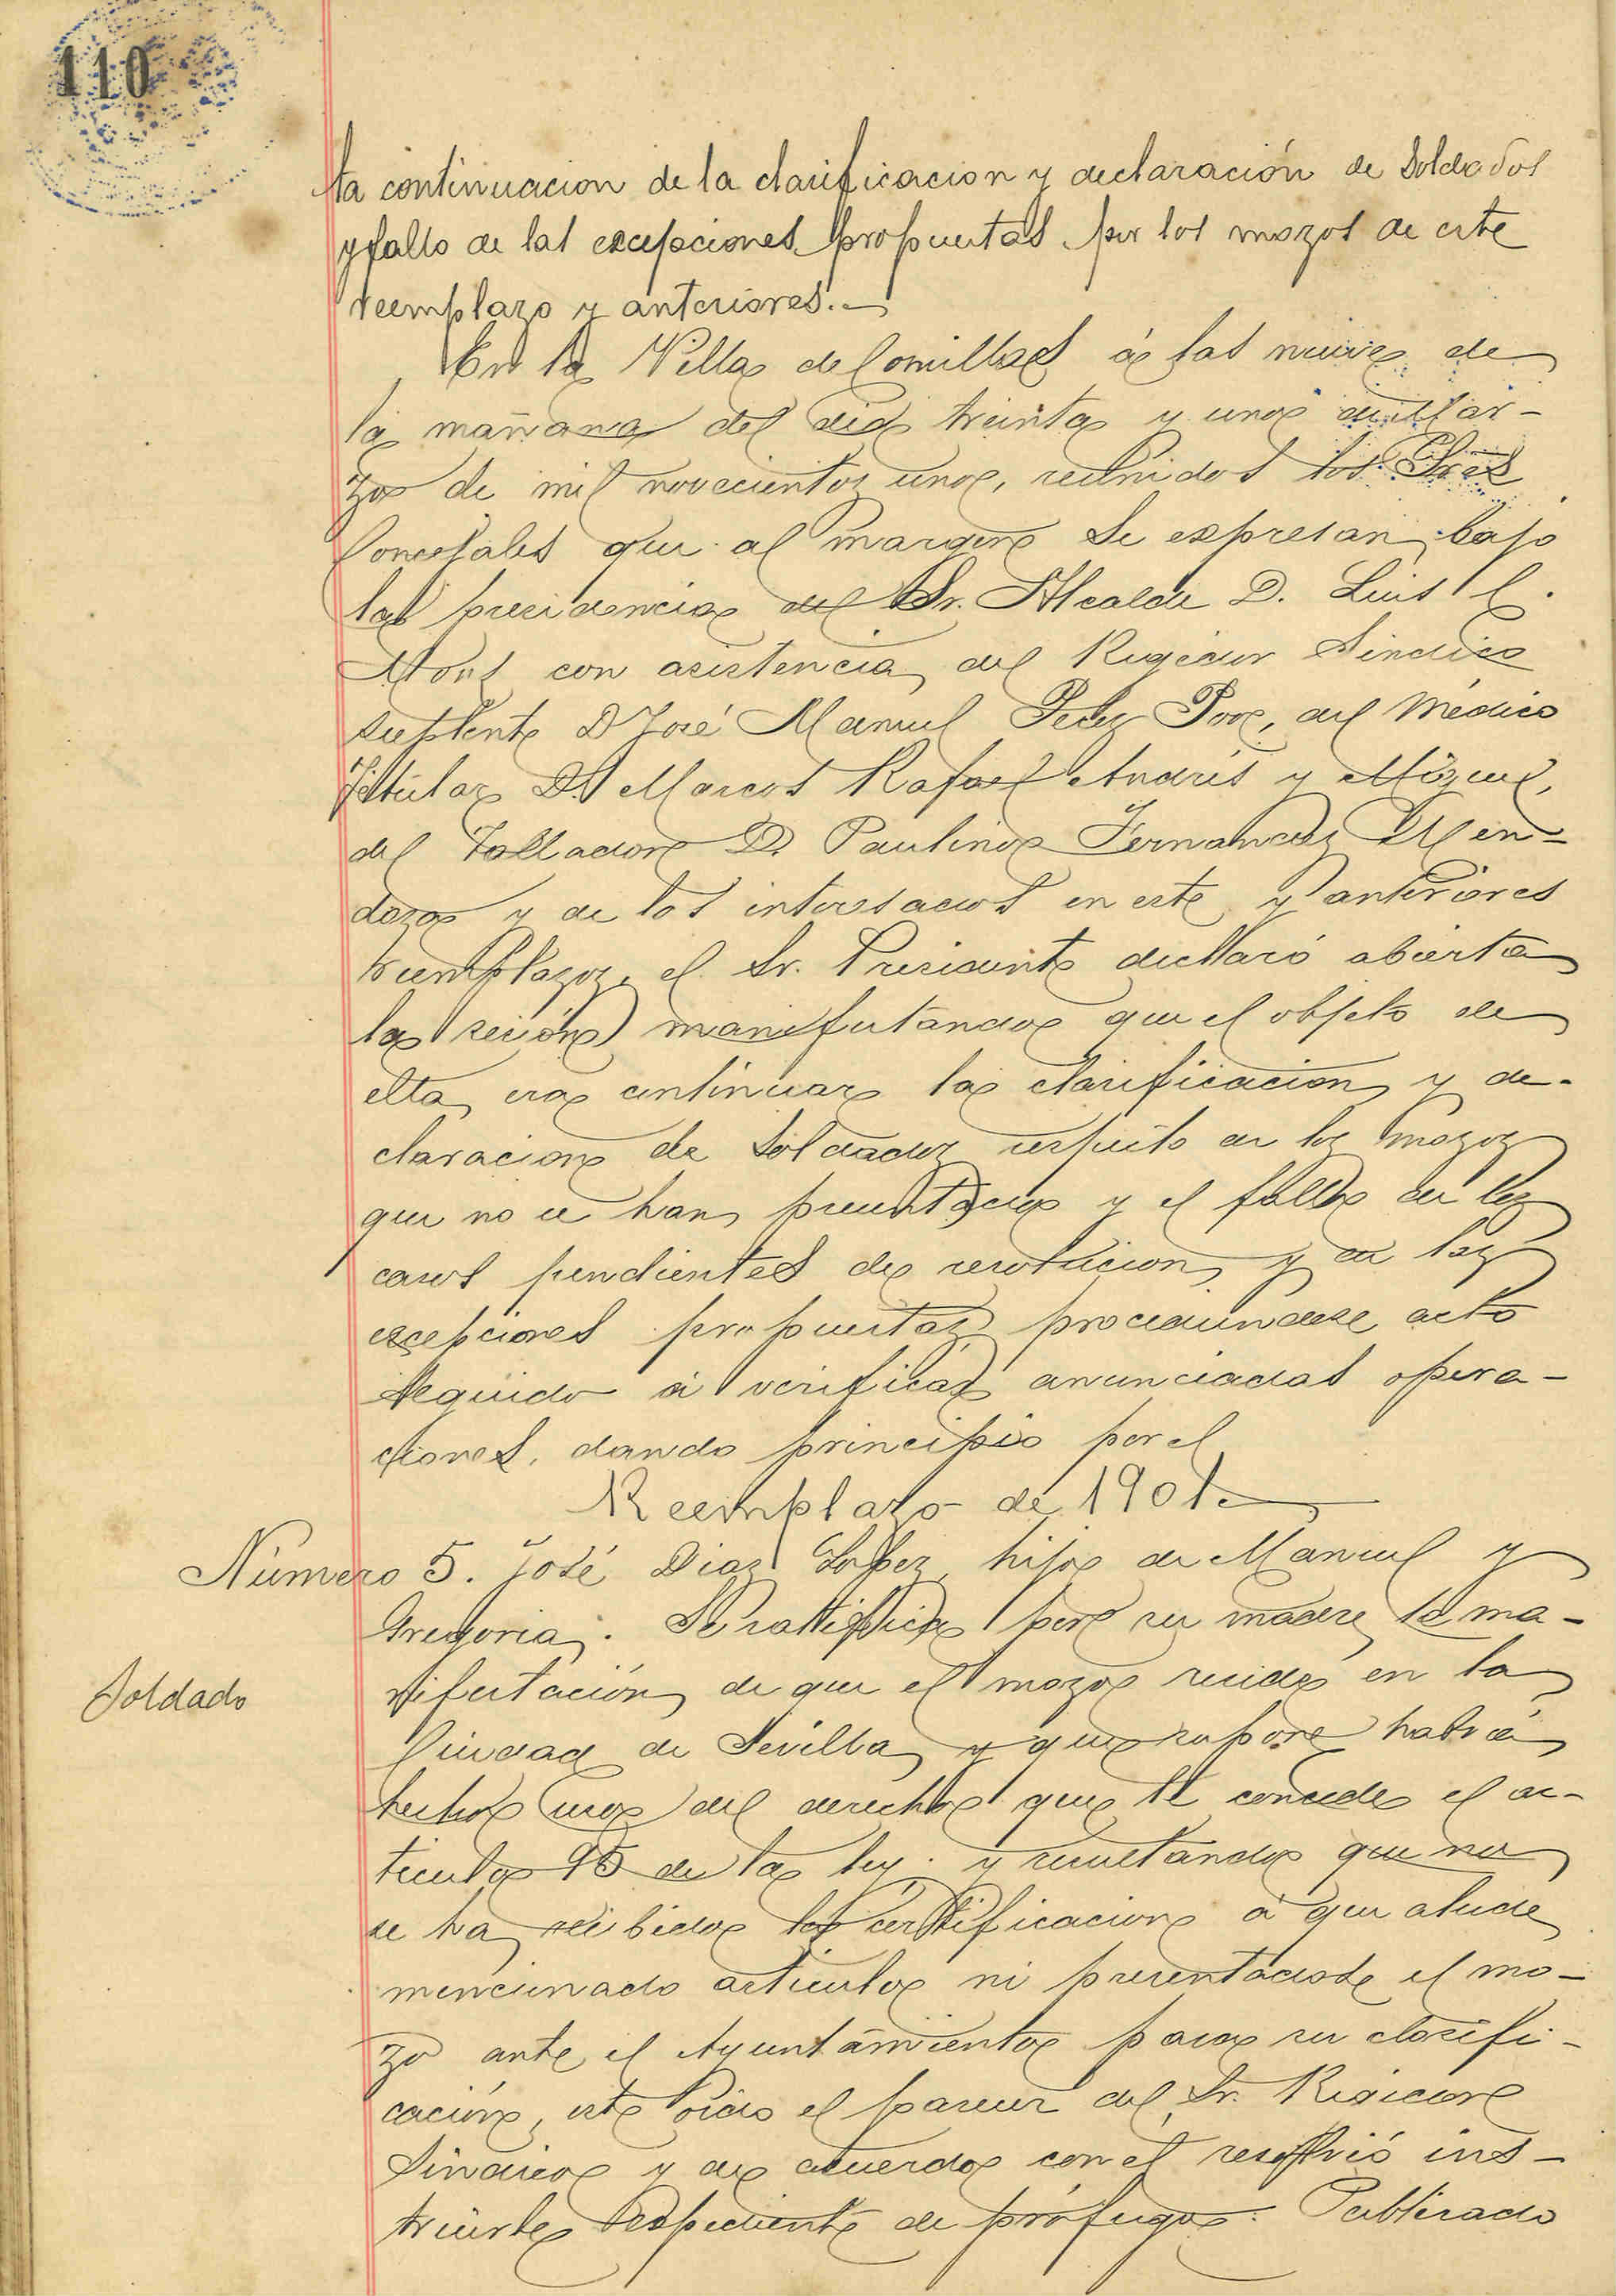 110
ta continuacion de la clasificacion y declaración de Soldados
y fallo de las excepciones propuestas por los mozos de este
reemplazo y anteriores.
En la Villa de Comillas á las nueve de
la mañana del dia treinta y uno de Mar-
zo de mil novecientos uno, reunidos los Sres
Concejales que al margen se expresan, bajo
la presidencia del Sr. Alcalde D. Luis C.
con asistencia del Regidor Sindico
suplente D José Manuel Perez Poo, del Médico
Titular D. Marcos Rafael Andrés y Miguel,
del Tallador D. Paulino Fernandez Men-
doza y de los interesados en este y anteriores
reemplazos, el Sr. Presidente declaró abierta
la sesión manifestando que el objeto de
esta era continuar la clasificacion y de-
claracion de Soldados respecto de los mozos
que no se han presentado y el fallo de los
casos pendientes de resolucion y de las
excepciones propuestas procediendose acto
seguido á verificar anunciadas opera-
ciones, dando principio por el
Reemplazo de 1901.
Número 5. José Diaz Lopez, hijo de Manuel y
Gregoria. Se ratifica por su madre la ma-
nifestación de que el mozo reside en la
Soldado
Ciudad de Sevilla y que supone habrá
hecho uso del derecho que le concede el ar-
ticulo 95 de la ley; y resultando que no
se ha recibido la certificacion á que alude
mencionado articulo ni presentadose el mo-
zo ante el Ayuntamiento para su clasifi-
cación, este oido el parecer del Sr. Regidor
Sindico y de acuerdo con el resolvió ins-
truirle expediente de prófugo. Publicado